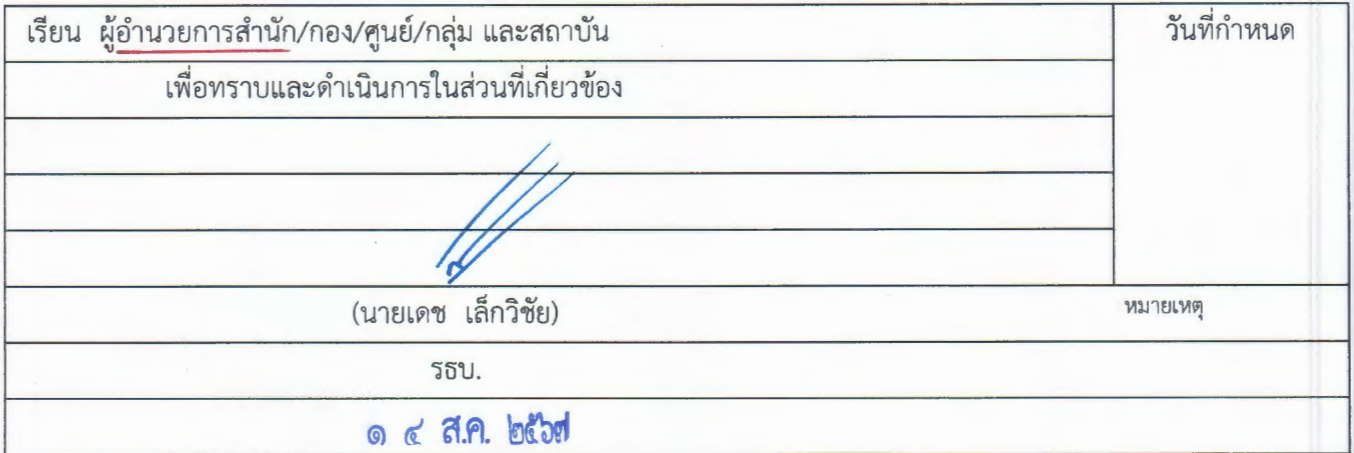 เรียน ผู้อำนวยการสำนัก/กอง/ศูนย์/กลุ่ม และสถาบัน
วันที่กำหนด
เพื่อทราบและดำเนินการในส่วนที่เกี่ยวข้อง
(นายเดช เล็กวิชัย)
หมายเหตุ
รธบ.
๑ ๔ ส.ค. ๒๕๖๗